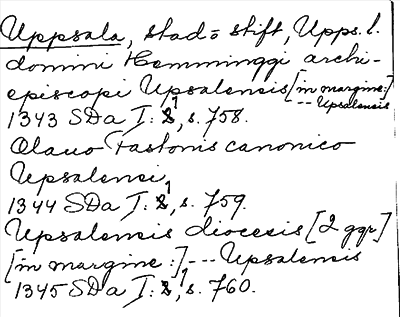 Uppsala, stad o stift, Upps. l.
domini Hemminggi archi-
episcopi Upsalensis [in margine:]
--- Upsalensis
1343 SDa I: 1, s. 758.
Olauo Fastonis canonico
Upsalensi,
1344 SDa I: 1, s. 759.
Upsalensis diocesis [2 ggr]
[in margine:] --- Upsalensis
1345 SDa I: 1, s. 760.